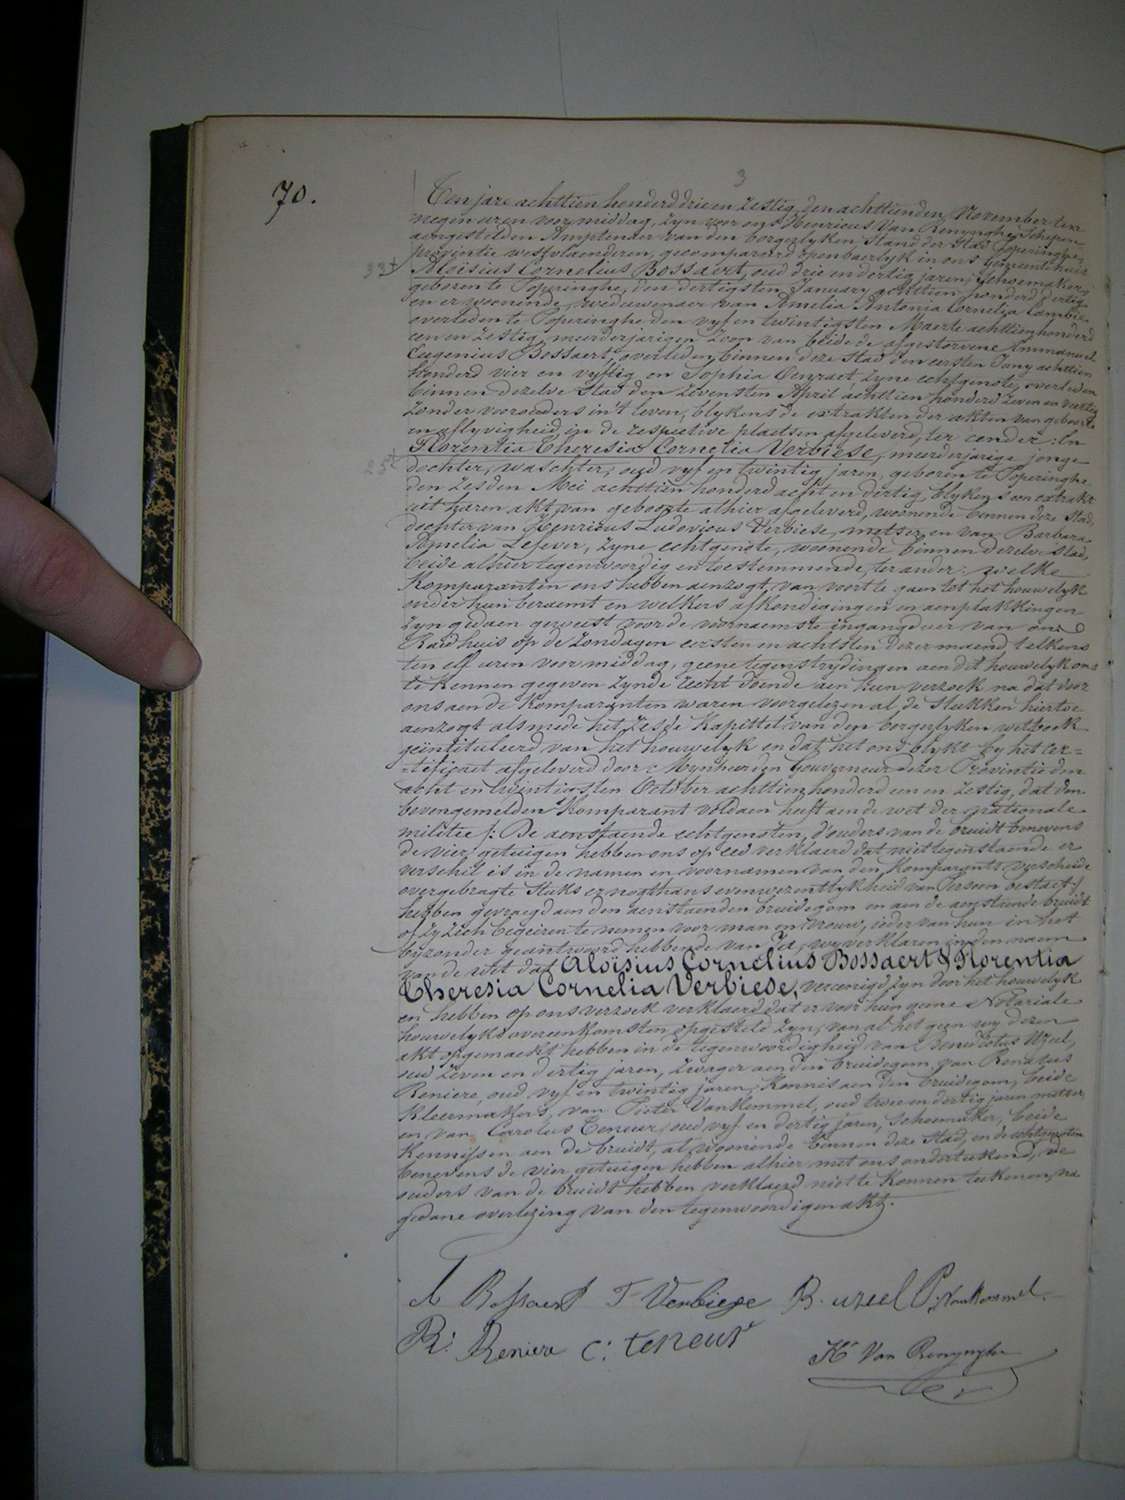 3
70.
Ten jare achttien honderd drie en zestig, den achttienden November ten
negen uren voormiddag, zyn voor ons Henricus Van Renynghe, Schepen
aengestelden Amptenaer van den borgerlyken Stand der Stad Poperinghe,
provintie westvlaenderen, gecompareerd openbaerlyk in ons Gemeentehuis
33 Aloïsius Cornelius Bossaert, oud drie en dertig jaren, schoemaker,
geboren te Poperinghe, den dertigsten January achttien honderd dertig
en er woonende, weduwenaer van Amelia Antonia Cornelia Cambie
overleden te Poperinghe den vyf en twintigsten Maerte achttien honderd
een en zestig, meerderjarigen zoon van beide de afgestorvene Emmanuel
Eugenius Bossaert, overleden binnen deze Stad den eersten Juny achttien
honderd vier en vyftig en Sophia Cenraet, zyne echtgenote, overleden
binnen dezelve Stad den zevensten April achttien honderd zeven en veertig
zonder voorouders in't leven, blykens de extrakten der akten van geboorte
en aflyvigheid in de respective plaetsen afgeleverd, ter eender: En
Florentia Theresia Cornelia Verbiese, meerderjarige jonge
dochter, waschter, oud vyf en twintig jaren, geboren te Poperinghe
den zesden Mei achttien honderd acht en dertig, blykens een extrakt
uit haren akt van geboorte alhier afgeleverd, woonende binnen deze Stad,
dochter van Henricus Ludovicus Verbiese, metser, en van Barbara
Amelia Lefever, zyne echtgenote, woonende binnen dezelve Stad,
beide alhier tegenwoordig en toestemmende, ter ander: welke
Komparanten ons hebben aenzogt, van voort te gaen tot het houwelyk
onder hun beraemt en welkers afkondigingen en aenplakkingen
zyn gedaen geweest voor de voornaemste ingangdeur van ons
Raedhuis op de Zondagen eersten en achtsten dezer maend, telkens
ten elf uren voormiddag, geene tegenstrydingen aen dit houwelyk ons
te kennen gegeven zynde recht doende aen hun verzoek na dat door
ons aen de Komparanten waren voorgelezen al de Stukken hiertoe
aenzogt alsmede het zesde Kapittel van den borgerlyken wetboek
geïntituleerd van het houwelyk en dat het ons blykt by het cer=
=tificaet afgeleverd door Mynheer den Gouverneur dezer Provintie den
acht en twintigsten October achttien honderd een en zestig, dat den
bovengemelden Komparant voldaen heeft aen de wet der nationale
militie /: De aenstaende echtgenoten, d'ouders van de bruidt benevens
de vier getuigen hebben ons op eed verklaerd dat niettegenstaende er
verschil is in de namen en voornamen van den Komparents verscheide
overgebragte Stuks er nogthans evenwezentlykheid van Persoon bestaet :/
hebben gevraegd aen den aenstaenden bruidegom en aen de aenstaende bruidt
of zy zich begeiren te nemen voor man en vrouw, ieder van hun in het
byzonder geantwoord hebbende van Ja, wy verklaren in den naem
van de wet dat Aloïsius Cornelius Bossaert & Florentia
Theresia Cornelia Verbiese, vereenigd zyn door het houwelyk
en hebben op ons verzoek verklaerd dat er voor hun geene Notariale
houwelyks overeenkomsten opgesteld zyn, van al het geen wy dezen
akt opgemaekt hebben in de tegenwoordigheid van Benedictus Uzeel,
oud zeven en dertig jaren, zwager aen den bruidegom, van Renatus
Reniere, oud vyf en twintig jaren, Kennis aen den bruidegom, beide
kleermakers, van Pieter Vankemmel, oud twee en dertig jaren metser
en van Carolus Teneur, oud vyf en dertig jaren, schoemaker, beide
Kennissen aen de bruidt, al woonende binnen deze Stad, en d'echtgenoten
benevens de vier getuigen hebben alhier met ons onderteekend, de
ouders van de bruidt hebben verklaerd niet te konnen teekenen, na
gedane overlezing van den tegenwoordigen akt.
A Bossaert F Verbiese B. uzeel P. Vankemmel.
R: Reniere C: teneur
Hri Van Renynghe